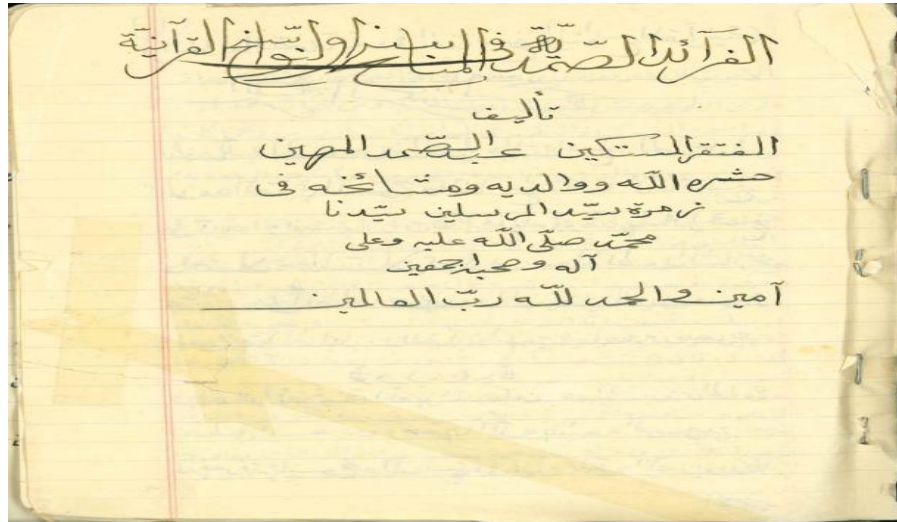 الفرآئد الصّمديّة في المناسخ والنّواسخ القرآنيّة
تأليف
الفقير المستكين عبد الصّمد المهين
حشره اللّه ووالديه ومشائخه فى
زمرة سيّد المرسلين سيّدنا
محمّد صلّى اللّه عليه وعلى
آله وصحبه اجمعين
آمين والحمد للّه ربّ العالمين